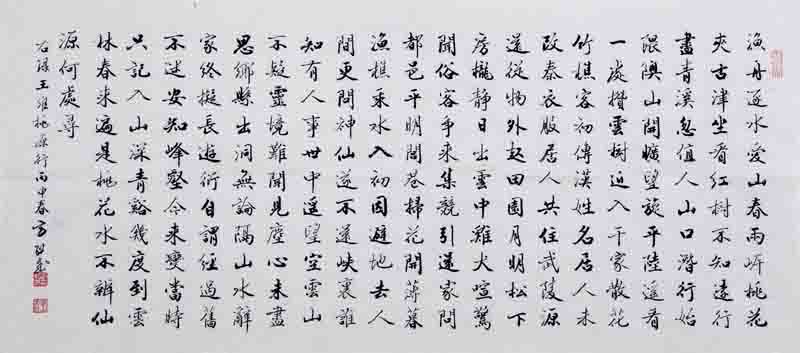 漁舟逐水愛山春兩岸桃花
夾古津坐看紅樹不知遠行
盡青溪忽值人山口潛行始
隈隩山開曠望旋平陸遙看
一處攢雲樹近入千家散花
竹樵客初傳漢姓名居人未
改秦衣服居人共住武陵源
還從物外起田園月明松下
房櫳靜日出雲中雞犬喧驚
聞俗客爭來集競引還家問
都邑平明閭巷掃花開薄暮
漁樵乘水入初因避地去人
間更問神仙遂不還峽裏誰
知有人事世中遙望空雲山
不疑靈境難聞見塵心未盡
思鄉縣出洞無論隔山水辭
家終擬長遊衍自謂經過舊
不迷安知峰壑今來變當時
只記入山深青谿幾度到雲
林春來遍是桃花水不辨仙
源何處尋
右錄王維桃源行丙申春方